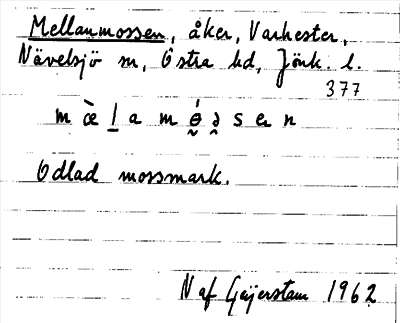 Mellanmossen, åker, Varhester,
Nävelsjö sn, Östra hd, Jönk. l.
377
m æ̀ l̲ a m ɵ́ ə s e n
Odlad mossmark.
N af Geijerstam 1962